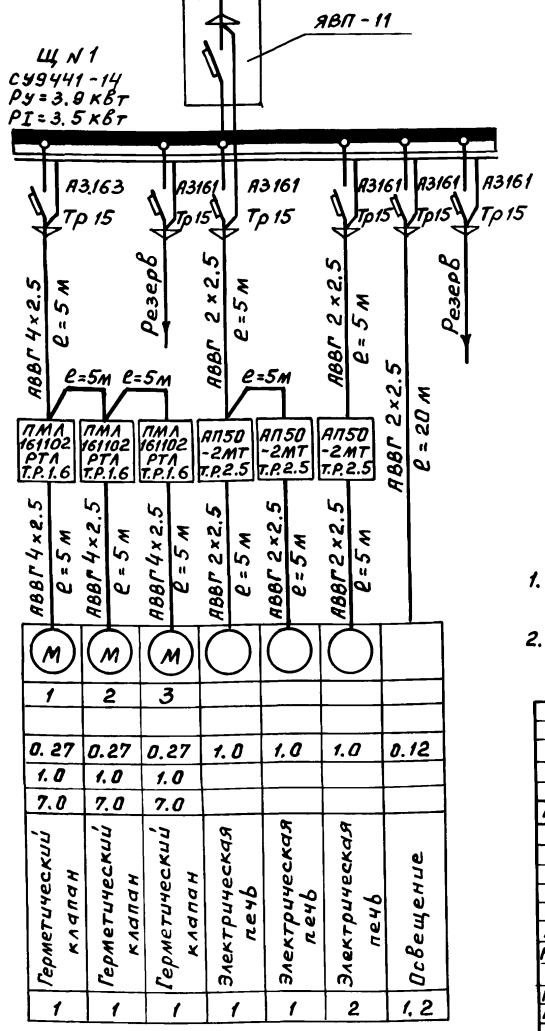 ЯВП-11
Щ N1
СУ9441-14
Ру=3.9 кВт
РI=3.5 кВт
А3163 А3161 А3161 А3161 А3161 А3161
Тр15 Тр15 Тр15 Тр15 Тр15 Тр15
АВВГ 4×2.5
ℓ=5м
Резерв
АВВГ 2×2.5
ℓ=5м
АВВГ 2×2.5
ℓ=5м
АВВГ 2×2.5
ℓ=20м
Резерв
ℓ=5м ℓ=5м ℓ=5м
ПМЛ ПМЛ ПМЛ АП50 АП50 АП50
161102 161102 161102 -2МТ -2МТ -2МТ
РТЛ РТЛ РТЛ Т.Р.2.5 Т.Р.2.5 Т.Р.2.5
Т.Р.1.6 Т.Р.1.6 Т.Р.1.6
АВВГ 4×2.5
ℓ=5м
АВВГ 4×2.5
ℓ=5м
АВВГ 4×2.5
ℓ=5м
АВВГ 2×2.5
ℓ=5м
АВВГ 2×2.5
ℓ=5м
АВВГ 2×2.5
ℓ=5м
М М М
1 2 3
0.27 0.27 0.27 1.0 1.0 1.0 0.12
1.0 1.0 1.0
7.0 7.0 7.0
Герметический
клапан
Герметический
клапан
Герметический
клапан
Электрическая
печь
Электрическая
печь
Электрическая
печь
Освещение
1 1 1 1 1 2 1,2
1.
2.